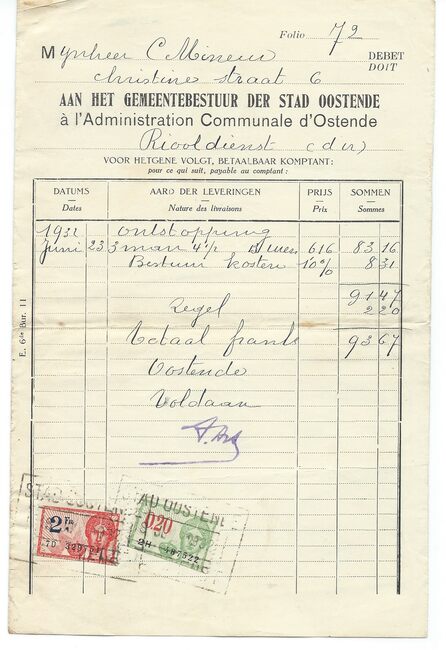 Folio 72
Mijnheer C Mineur DEBET
Christine straat 6 DOIT
AAN HET GEMEENTEBESTUUR DER STAD OOSTENDE
à l'Administration Communale d'Ostende
Riooldienst
VOOR HETGENE VOLGT, BETAALBAAR KOMPTANT:
pour ce qui suit, payable au comptant :
DATUMS AARD DER LEVERINGEN PRIJS SOMMEN
Dates Nature des livraisons Prix Sommes
1932 ontstopping
Juni 23 3 man 4 1/2 uren 616 83 16
Bestuur kosten 10% 8 31
91 47
Zegel 2 20
Totaal frank 93 67
Oostende
Voldaan
E. 6de Bur. 11
STAD OOSTENDE STAD OOSTENDE
2 Fr 020